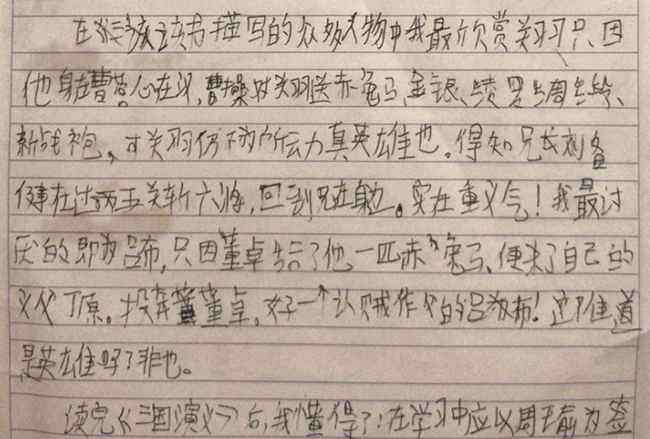 在这该书描写的众多人物中我最欣赏关羽,只因
他身在曹营心在汉,曹操对关羽送赤兔马、金银、绫罗绸缎、
新战袍,可关羽仍不为所动力真英雄也。得知兄长刘备
健在过五关斩六将,回到兄在身边。实在重义气!我最讨
厌的即为吕布,只因董卓给了他一匹赤兔马、便杀了自己的
义父丁原。投奔董卓,好一个认贼作父的吕布!这难道
是英雄吗?非也。
读完《三国演义》后,我懂得了:在学习中应以周瑜为鉴